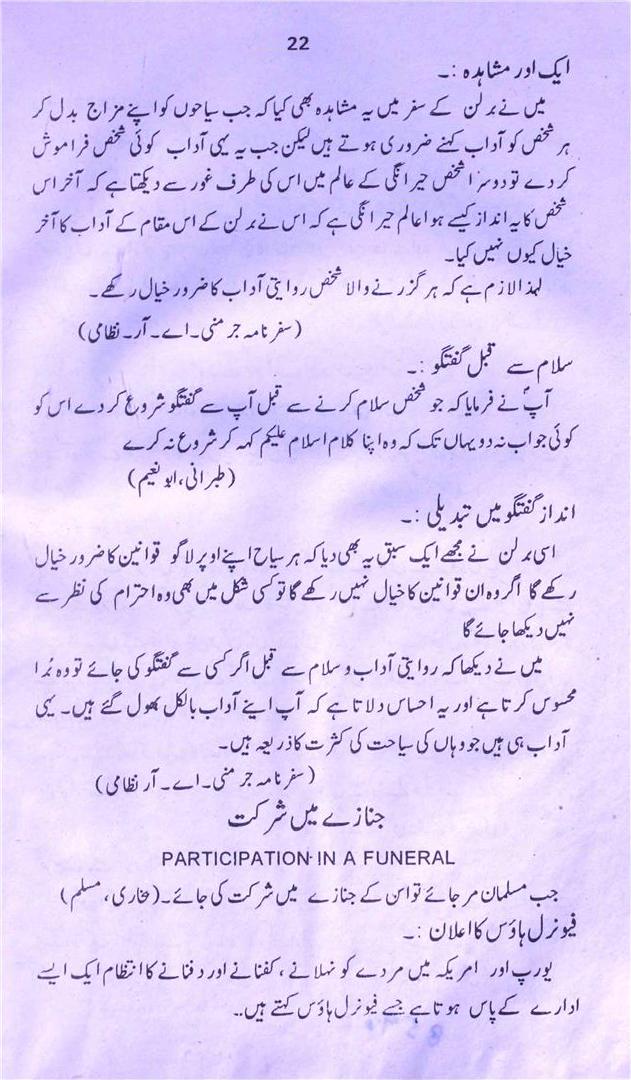 22
ایک اور مشاہدہ :۔
میں نے برلن کے سفر میں یہ مشاہدہ بھی کیا کہ جب سیاحوں کو اپنے مزاج بدل کر
ہر شخص کو آداب کہنے ضروری ہوتے ہیں لیکن جب یہ یہی آداب کوئی شخص فراموش
کر دے تو دوسرا شخص حیرانگی کے عالم میں اس کی طرف غور سے دیکھتا ہے کہ آخر اس
شخص کا یہ انداز کیسے ہوا عالم حیرانگی ہے کہ اس نے برلن کے اس مقام کے آداب کا آخر
خیال کیوں نہیں کیا۔
لہذا لازم ہے کہ ہر گزرنے والا شخص روایتی آداب کا ضرور خیال رکھے۔
(سفر نامہ جرمنی۔اے۔آر۔نظامی)
سلام سے قبل گفتگو :۔
آپؐ نے فرمایا کہ جو شخص سلام کرنے سے قبل آپ سے گفتگو شروع کر دے اس کو
کوئی جواب نہ دو یہاں تک کہ وہ اپنا کلام اسلام علیکم کہہ کر شروع نہ کرے
(طبرانی، ابو نعیم)
انداز گفتگو میں تبدیلی :۔
اسی برلن نے مجھے ایک سبق یہ بھی دیا کہ ہر سیاح اپنے اوپر لاگو قوانین کا ضرور خیال
رکھے گا اگر وہ ان قوانین کا خیال نہیں رکھے گا تو کسی شکل میں بھی وہ احترام کی نظر سے
نہیں دیکھا جائے گا
میں نے دیکھا کہ روایتی آداب و سلام سے قبل اگر کسی سے گفتگو کی جائے تو وہ بُرا
محسوس کرتا ہے اور یہ احساس دلاتا ہے کہ آپ اپنے آداب بالکل بھول گئے ہیں۔ یہی
آداب ہی ہیں جو وہاں کی سیاحت کی کثرت کا ذریعہ ہیں۔
(سفر نامہ جرمنی۔اے۔آر نظامی)
جنازے میں شرکت
PARTICIPATION IN A FUNERAL
جب مسلمان مر جائے تو اس کے جنازے میں شرکت کی جائے۔(بخاری، مسلم)
فیونرل ہاؤس کا اعلان :۔
یورپ اور امریکہ میں مردے کو نہلانے، کفنانے اور دفنانے کا انتظام ایک ایسے
ادارے کے پاس ہوتا ہے جسے فیونرل ہاؤس کہتے ہیں۔۔